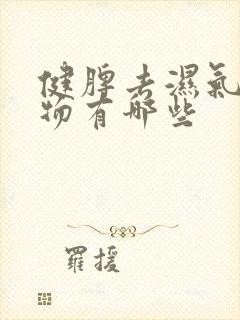 健脾去濕氣
物有哪些
羅援